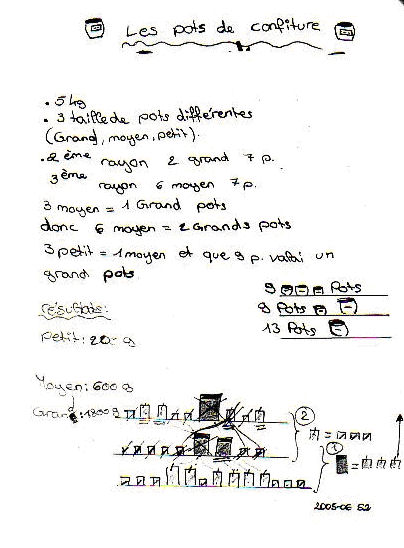 Les pots de confiture
. 5 kg
. 3 taille de pots différentes
(Grand, moyen, petit).
. 2ème rayon 2 grand 7 p.
3ème rayon 6 moyen 7 p.
3 moyen = 1 Grand pots
donc 6 moyen = 2 Grands pots
3 petit = 1 moyen et que 9 p. valai un
grand pots
9 Pots
9 Pots
13 Pots
résultats:
Petit: 200 g
Moyen: 600 g
Grand: 1800 g
2
=
1
=
2005-06 52